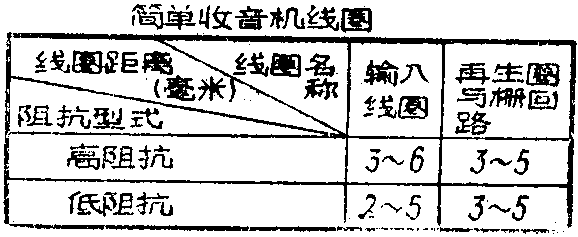 简单收音机线圈
线圈距离 线圈名 输入 再生圈
(毫米) 称 线圈 与栅回
阻抗型式 路
高阻抗 3~6 3~5
低阻抗 2~5 3~5